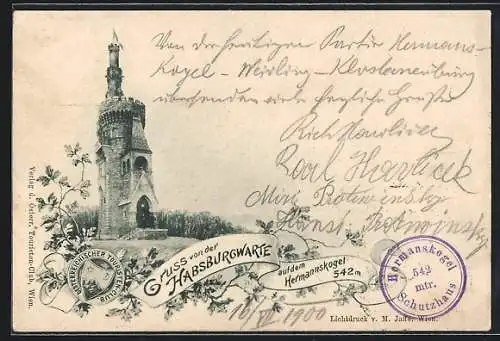 Von der heutigen Partie Hermanns-
Kogel - Weidling - Klosterneuburg
übersenden viele herzliche Grüße
Karl Havlicek
Mizi Potowinsky
Hansi Potowinsky
Verlag d. Österr. Touristen-Club, Wien.
ÖSTERREICHISCHER TOURISTEN-CLUB
Gruss von der
HABSBURGWARTE
auf dem
Hermannskogel
542 m
Hermannskogel
542
mtr.
Schutzhaus
16/VII 1900
Lichtdruck v. M. Jaffé, Wien.